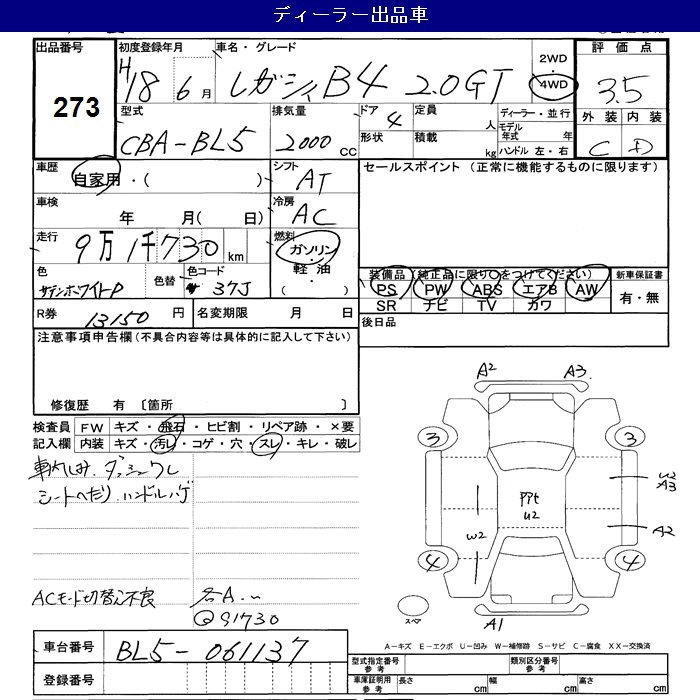 ディーラー出品車
出品番号 初度登録年月 車名・グレード 2WD 評価点
273 H18 6月 レガシィ B4 2.0GT 4WD 3.5
型式 排気量 ドア 定員 ディーラー・並行 外装 内装
CBA-BL5 2000CC 4 人 モデル年式 年 C D
形状 積載 kg ハンドル 左・右
車歴 シフト セールスポイント (正常に機能するものに限ります)
自家用・( ) AT
車検 冷房
年 月( 日) AC
走行 燃料
9万1千730km ガソリン・軽油・( )
色 色替 色コード 装備品(純正品に限り○をつけてください) 新車保証書
サテンホワイトP 37J PS PW ABS エアB AW 有・無
SR ナビ TV カワ
R券 13150円 名変期限 月 日 後日品
注意事項申告欄(不具合内容等は具体的に記入して下さい)
修復歴 有 〔箇所 〕
検査員 FW キズ・飛石・ヒビ割・リペア跡・×要
記入欄 内装 キズ・汚レ・コゲ・穴・スレ・キレ・破レ
車内しみ.ダッシュワレ
シートへたり.ハンドルハゲ
ACモード切替え不良
Q91730
A2 A3
3 3
W2
A3
PPt
U2
W2 A2
4 4
スペア A1
A-キズ E-エクボ U-凹み W-補修跡 S-サビ C-腐食 XX-交換済
車台番号 BL5-061137
型式指定番号 参考 類別区分番号 参考
登録番号 車庫証明用 参考 長さ cm 幅 cm 高さ cm